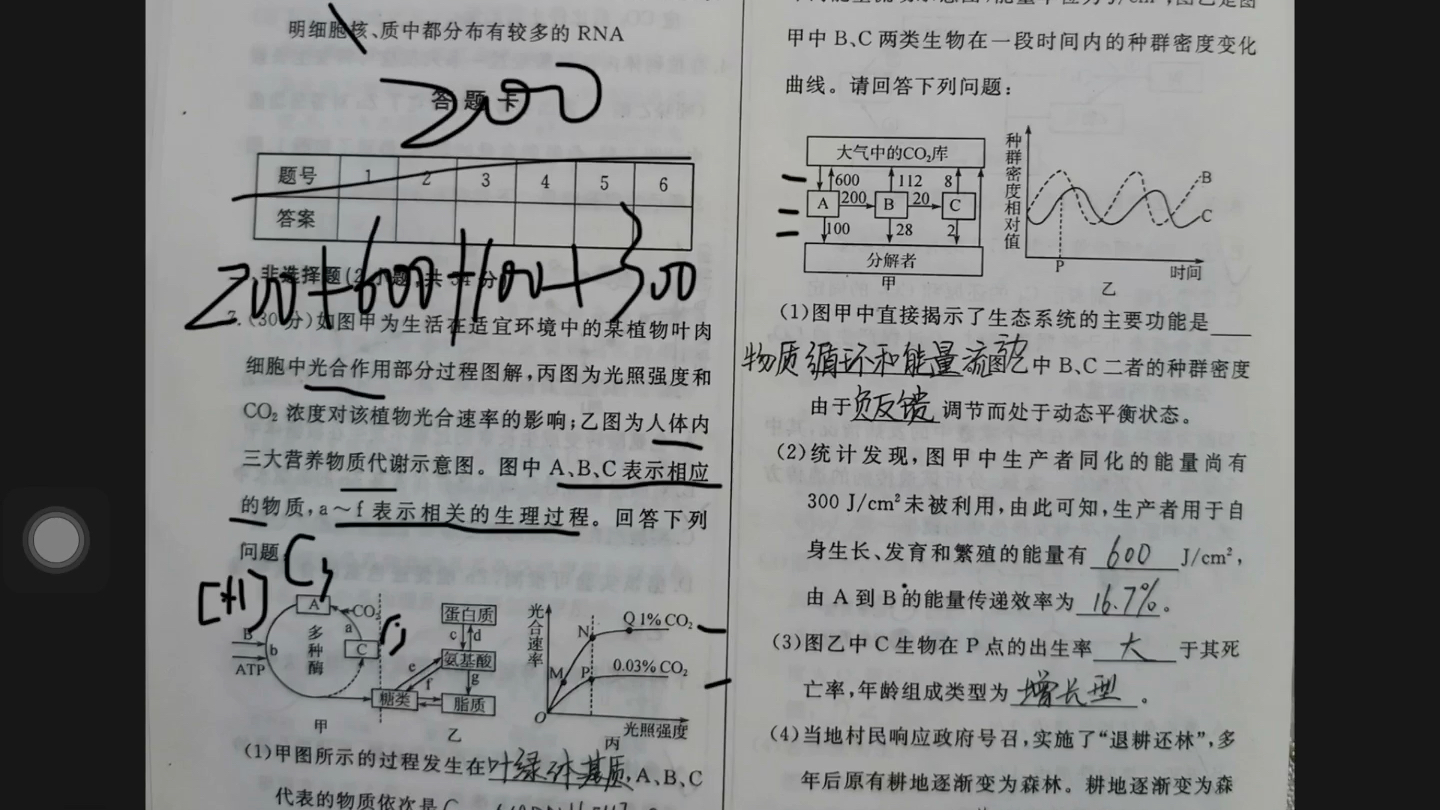 明细胞核、质中都分布有较多的 RNA
答题卡
200
题号 1 2 3 4 5 6
答案
200+600+100+300
非选择题(2小题,共54分)
7.(30分)如图甲为生活在适宜环境中的某植物叶肉
细胞中光合作用部分过程图解,丙图为光照强度和
CO₂ 浓度对该植物光合速率的影响;乙图为人体内
三大营养物质代谢示意图。图中 A、B、C 表示相应
的物质,a~f 表示相关的生理过程。回答下列
问题:
C₃
[H]
A
CO₂
a
多种酶
C
B
b
ATP
糖类
甲
蛋白质
c d
氨基酸
e
f
g
脂质
乙
光合速率
Q 1% CO₂
N
0.03% CO₂
M
P
O
光照强度
丙
(1)甲图所示的过程发生在叶绿体基质,A、B、C
代表的物质依次是
甲中 B、C 两类生物在一段时间内的种群密度变化
曲线。请回答下列问题:
大气中的CO₂库
600 112 8
A 200 B 20 C
100 28 2
分解者
甲
种群密度相对值
B
C
P
时间
乙
(1)图甲中直接揭示了生态系统的主要功能是
物质循环和能量流动
图乙中 B、C 二者的种群密度
由于负反馈调节而处于动态平衡状态。
(2)统计发现,图甲中生产者同化的能量尚有
300 J/cm²未被利用,由此可知,生产者用于自
身生长、发育和繁殖的能量有 600 J/cm²,
由 A 到 B 的能量传递效率为 16.7%。
(3)图乙中 C 生物在 P 点的出生率 大 于其死
亡率,年龄组成类型为 增长型 。
(4)当地村民响应政府号召,实施了“退耕还林”,多
年后原有耕地逐渐变为森林。耕地逐渐变为森